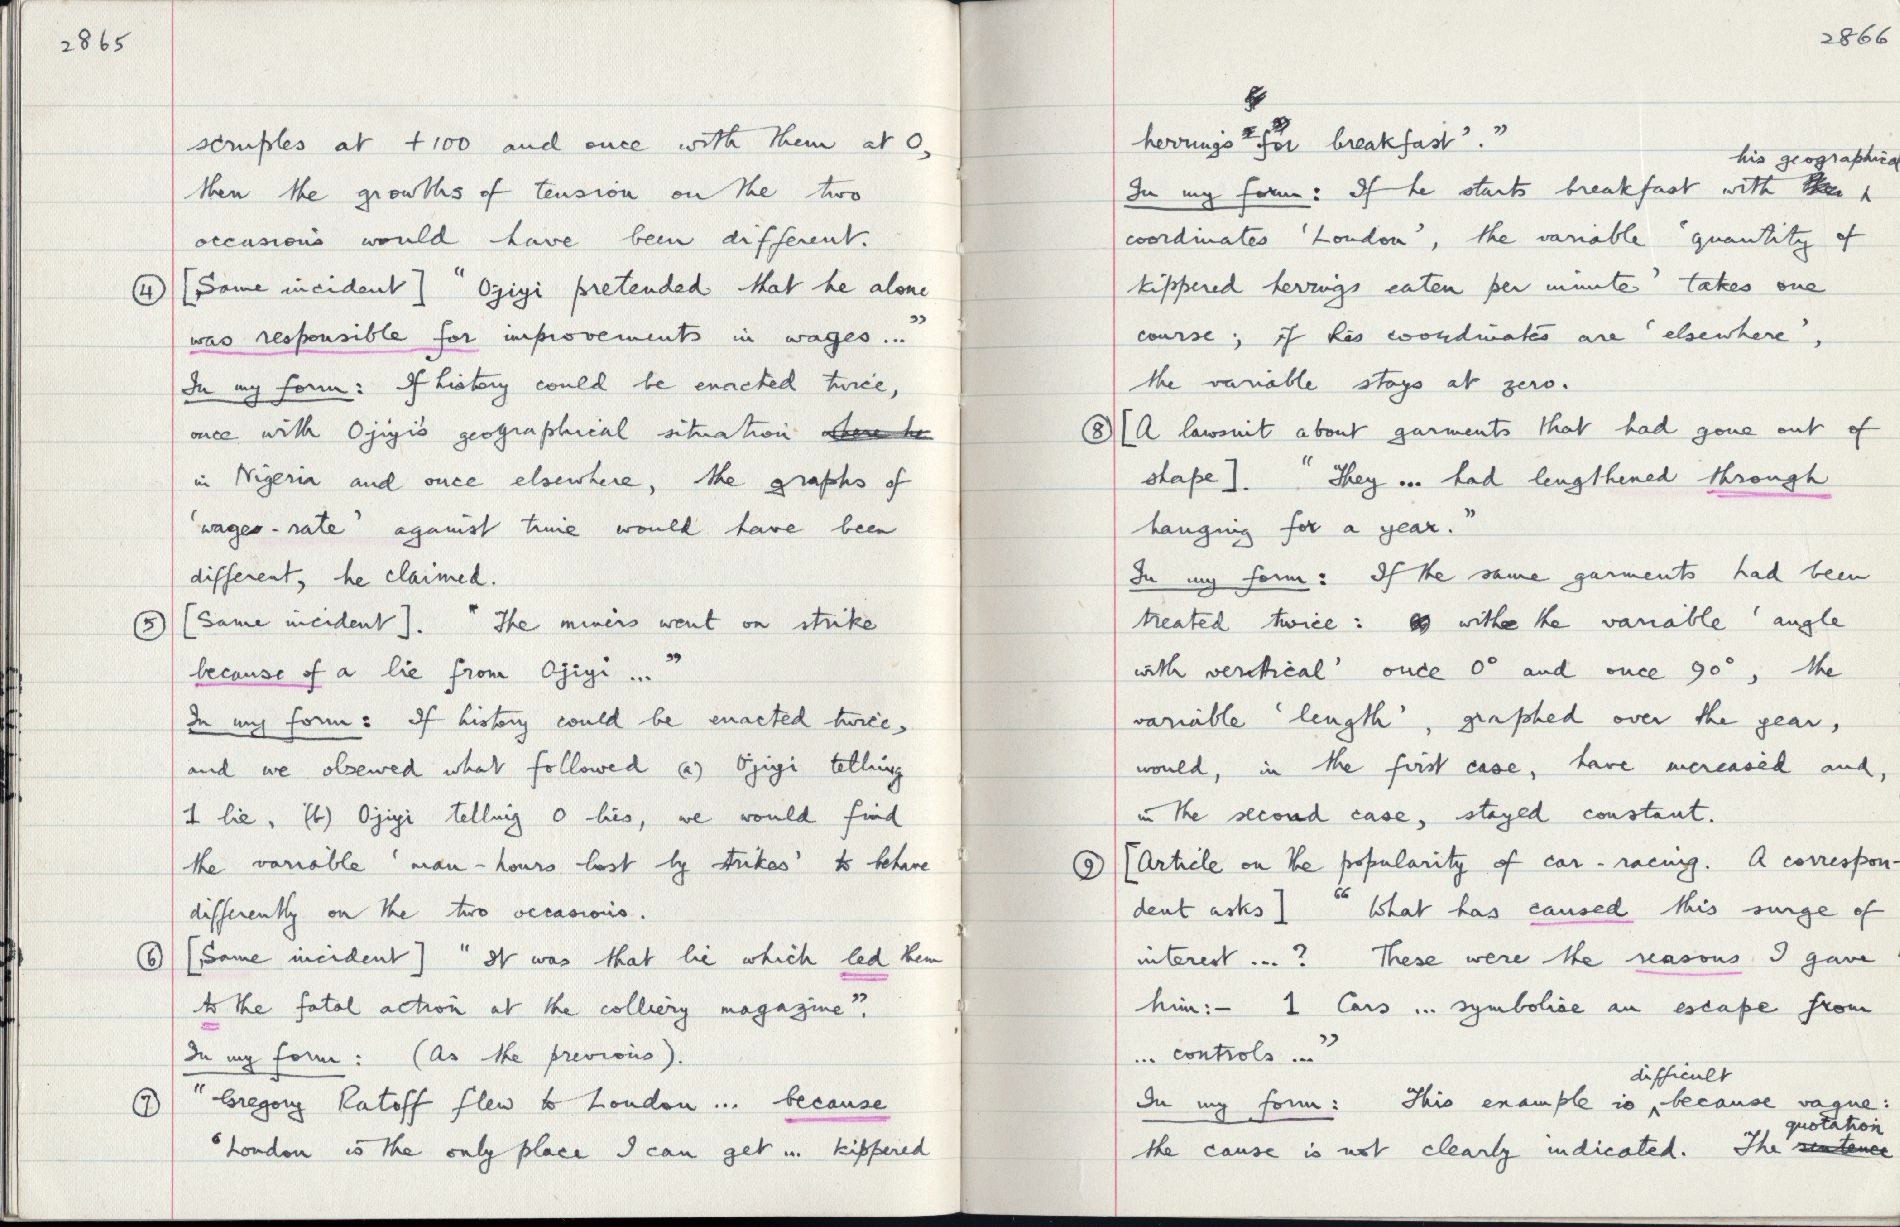 2865
scruples at +100 and once with them at 0,
then the growths of tension on the two
occasions would have been different.
④ [Same incident] "Ojiyi pretended that he alone
was responsible for improvements in wages..."
In my form: If history could be enacted twice,
once with Ojiyi's geographical situation where he
in Nigeria and once elsewhere, the graphs of
'wages-rate' against time would have been
different, he claimed.
⑤ [Same incident]. "The miners went on strike
because of a lie from Ojiyi ..."
In my form: If history could be enacted twice,
and we observed what followed (a) Ojiyi telling
1 lie, (b) Ojiyi telling 0 lies, we would find
the variable 'man-hours lost by strikes' to behave
differently on the two occasions.
⑥ [Same incident] "It was that lie which led them
to the fatal action at the colliery magazine".
In my form: (As the previous).
⑦ "Gregory Ratoff flew to London ... because
'London is the only place I can get ... kippered
2866
herrings for breakfast'."
his geographical
In my form: If he starts breakfast with
coordinates 'London', the variable 'quantity of
kippered herrings eaten per minute' takes one
course; if his coordinates are 'elsewhere',
the variable stays at zero.
⑧ [A lawsuit about garments that had gone out of
shape]. "They ... had lengthened through
hanging for a year."
In my form: If the same garments had been
treated twice: with the variable 'angle
with vertical' once 0° and once 90°, the
variable 'length', graphed over the year,
would, in the first case, have increased and,
in the second case, stayed constant.
⑨ [Article on the popularity of car-racing. A correspon-
dent asks] "What has caused this surge of
interest ...? These were the reasons I gave
him:- 1 Cars ... symbolise an escape from
... controls ..."
difficult
In my form: This example is ‸ because vague:
quotation
the cause is not clearly indicated. The sentence